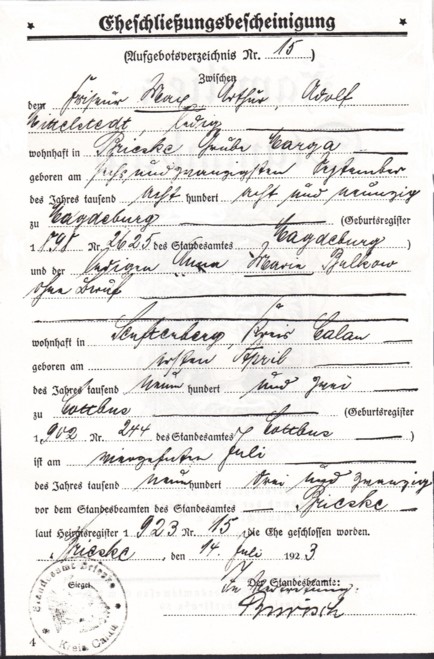 Eheschließungsbescheinigung
(Aufgebotsverzeichnis Nr. 15)
Zwischen
dem Friseur Max Arthur, Adolf
ledig
wohnhaft in Brieske Grube Marga
geboren am sechsundzwanzigsten September
des Jahres tausend acht hundert acht und neunzig
zu Magdeburg (Geburtsregister
1898 Nr. 2625 des Standesamtes Magdeburg)
und der ledigen Anna Marie Bulkow
ohne Beruf
wohnhaft in Senftenberg, Kreis Calau
geboren am ersten April
des Jahres tausend neun hundert und zwei
zu Cottbus (Geburtsregister
1902 Nr. 244 des Standesamtes Cottbus)
ist am vierzehnten Juli
des Jahres tausend neun hundert drei und zwanzig
vor dem Standesbeamten des Standesamtes Brieske
laut Heiratsregister 1923 Nr. 15, die Ehe geschlossen worden.
Brieske, den 14. Juli 1923
Der Standesbeamte:
Siegel
In Vertretung:
Standesamt Brieske
Kreis Calau
4